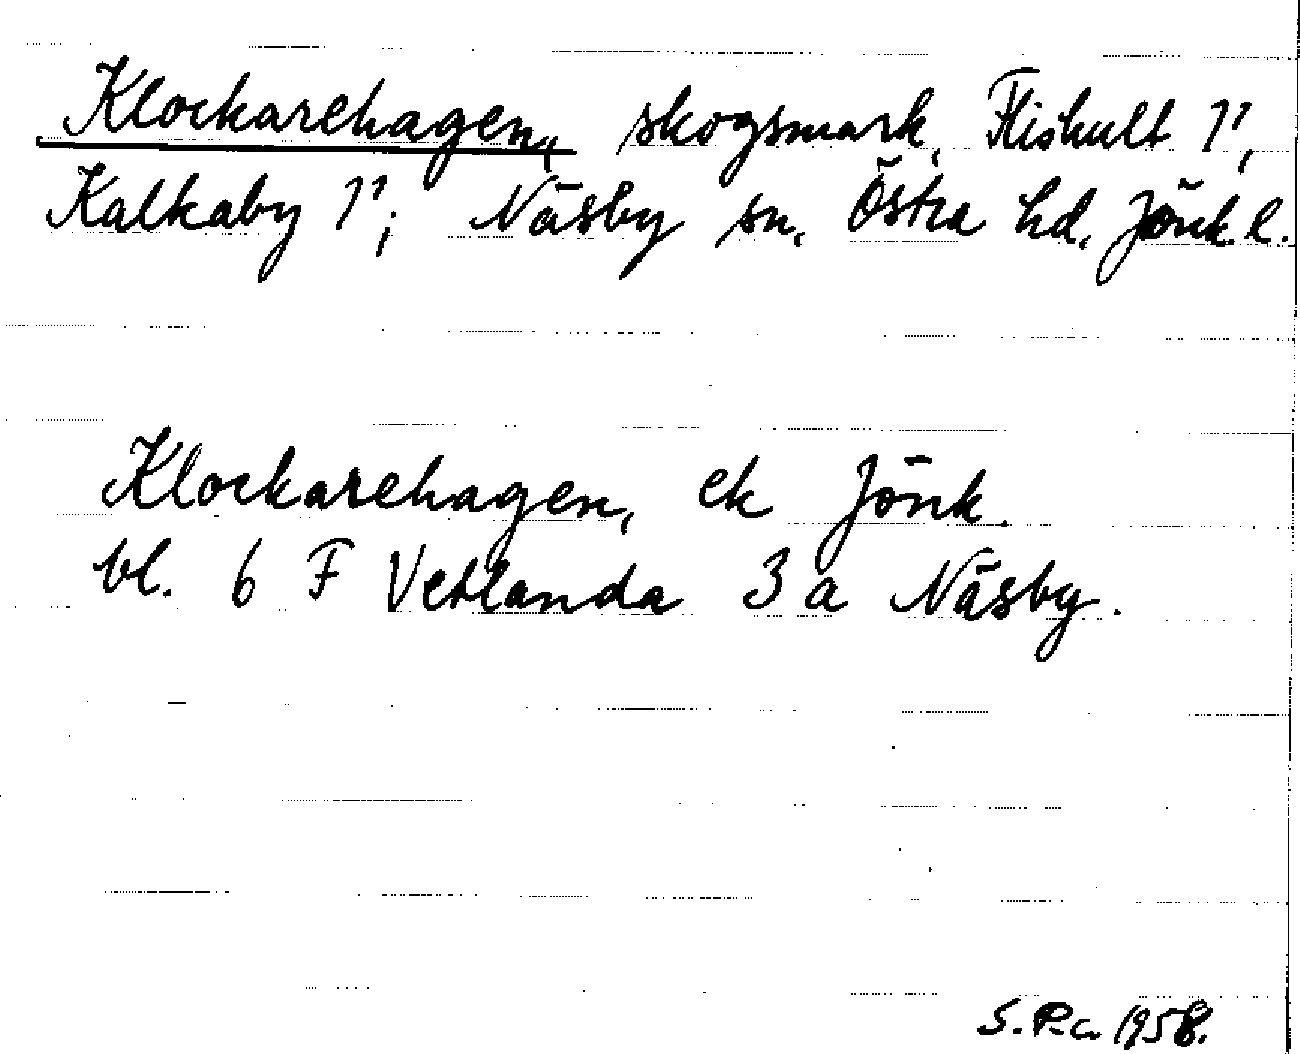 Klockarehagen, skogsmark, Flishult 1¹,
Kalkaby 1¹; Näsby sn, Östra hd. Jönk. l.
Klockarehagen, ek Jönk.
bl. 6 F Vetlanda 3 a Näsby.
S.R-a. 1958.